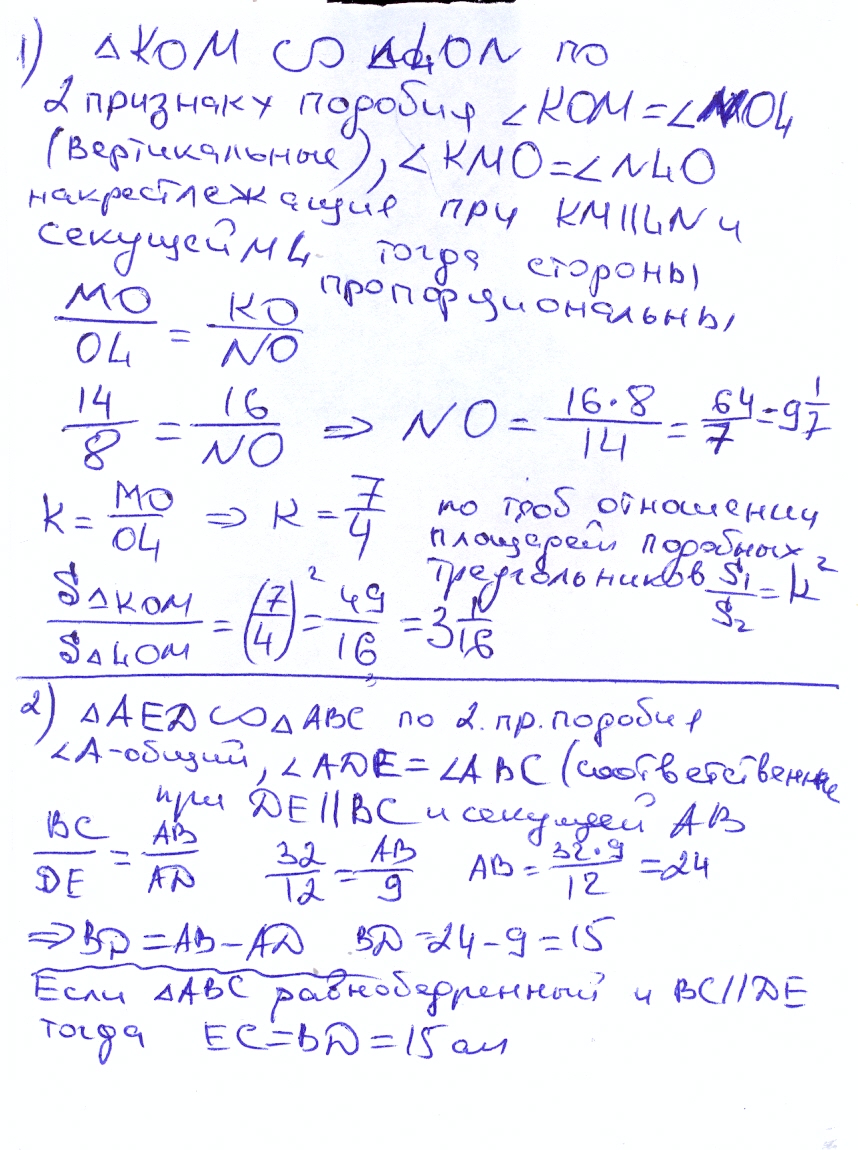 1) △KOM ∽ △LON по
2 признаку подобия ∠KOM=∠NOL
(вертикальные), ∠KMO=∠NLO
накрестлежащие при KM||LN и
секущей ML тогда стороны
пропорциональны
MO/OL = KO/NO
14/8 = 16/NO ⇒ NO = 16·8/14 = 64/7 = 9 1/7
K = MO/OL ⇒ K = 7/4 по отношении
площадей подобных
треугольников S₁/S₂ = k²
S△KOM/S△LOM = (7/4)² = 49/16 = 3 1/16
2) △AED ∽ △ABC по 2. пр. подобия
∠A-общий, ∠ADE=∠ABC (соответственные
при DE||BC и секущей AB
BC/DE = AB/AD 32/12 = AB/9 AB = 32·9/12 = 24
⇒ BD = AB − AD BD = 24 − 9 = 15
Если △ABC равнобедренный и BC//DE
тогда EC=BD=15 см